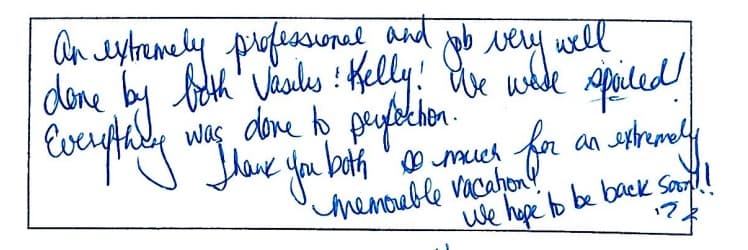 An extremely professional and job very well
done by both Vasilis ! Kelly! We were spoiled!
Everything was done to perfection.
Thank you both so much for an extremely
memorable vacation!
We hope to be back soon!!